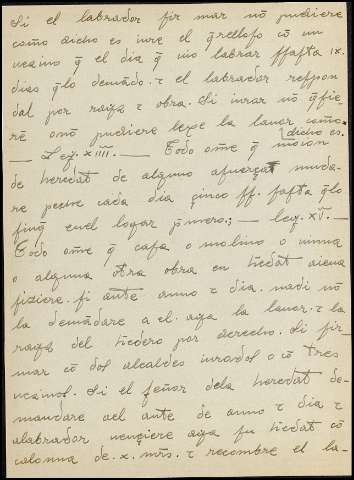 Si el labrador fir mar nõ pudiere
como dicho es iure el q̃relloso cõ un
uezino q̃ el dia q̃ uio labrar ffasta ix.
dias q̃lo demãdo. τ el labrador respon
dal por rayz τ obra. Si iurar nõ q̃sie
re o nõ pudiere lexe la lauor como
dicho es.
— Ley. xiiii. — Todo ome q̃ moion
de heredat de alguno afuerça muda-
re peche cada dia çinco ss. fasta q̃lo
finq̃ enel logar p̃mero; — ley. xv. —
Todo ome q̃ casa o molino o uinna
o alguna otra obra en h̃edat aiena
fiziere. si ante anno τ dia. nadi nõ
la demãdare a el. aya la lauor. τ la
rayz del h̃edero por derecho. Si fir-
mar cõ dos alcaldes iurados o cõ tres
uezinos. Si el señor dela heredat de-
mandare ael ante de anno τ dia τ
alabrador uençiere aya su h̃edat cõ
calonna de .x. mr̃s. τ recombre el la-